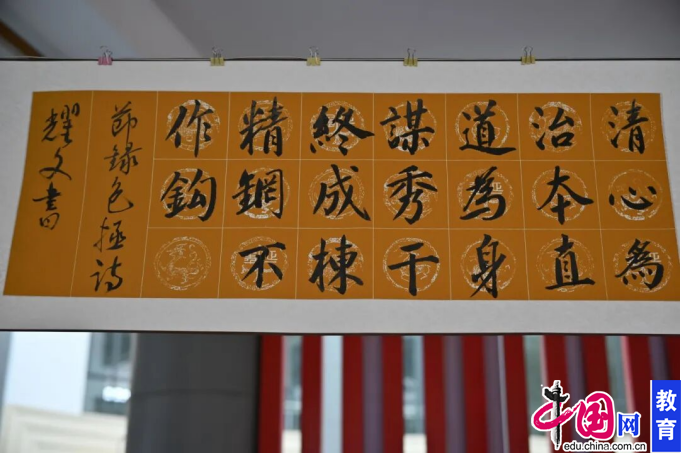 清心為
治本直
道為身
謀秀干
終成棟
精鋼不
作鈎
節錄包拯詩
耀文書
中国网
edu.china.com.cn
教育